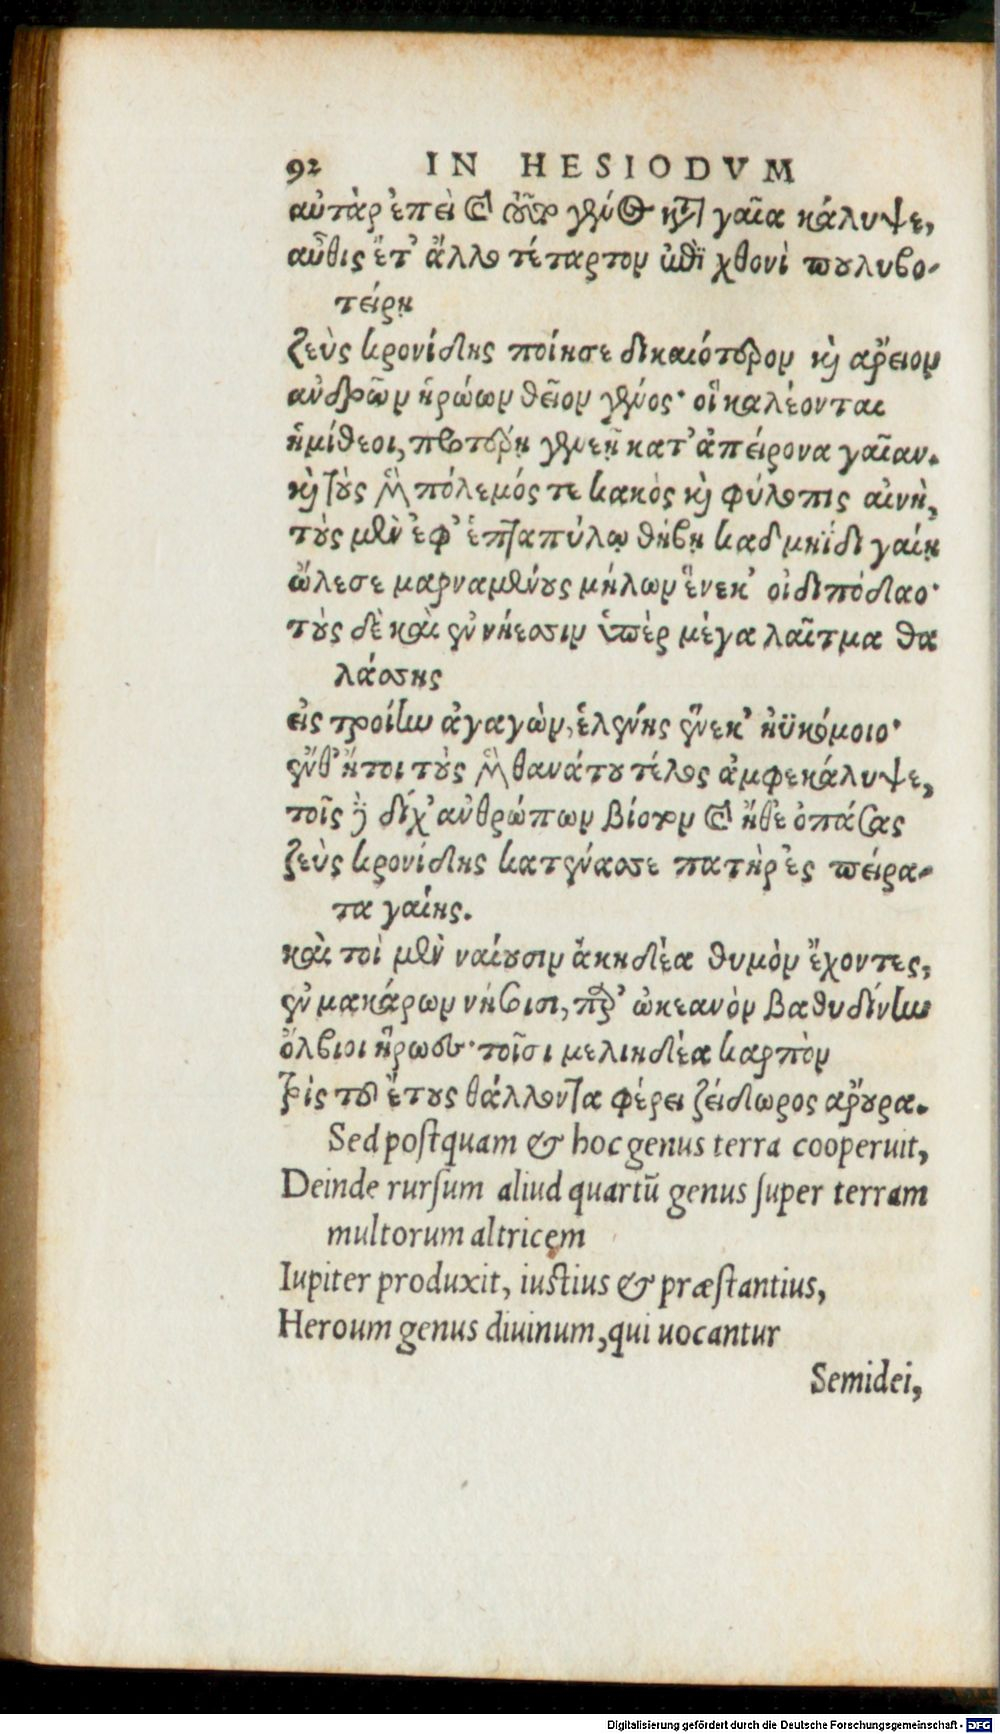 92 IN HESIODVM
αὐτὰρ ἐπεὶ καὶ τοῦτο γένος κατὰ γαῖα κάλυψε,
αὖθις ἔτ' ἄλλο τέταρτον ἐπὶ χθονὶ πουλυβο-
τείρῃ
ζεὺς κρονίδης ποίησε δικαιότερον καὶ ἄρειον
ἀνδρῶν ἡρώων θεῖον γένος· οἳ καλέονται
ἡμίθεοι, προτέρῃ γενεῇ κατ' ἀπείρονα γαῖαν.
καὶ τοὺς μὲν πόλεμός τε κακὸς καὶ φύλοπις αἰνὴ,
τοὺς μὲν ἐφ' ἑπταπύλῳ θήβῃ καδμηΐδι γαίῃ
ὤλεσε μαρναμένους μήλων ἕνεκ' οἰδιπόδαο·
τοὺς δὲ καὶ ἐν νήεσσιν ὑπὲρ μέγα λαῖτμα θα
λάσσης
εἰς τροίην ἀγαγὼν, ἑλένης ἕνεκ' ἠϋκόμοιο·
ἔνθ' ἤτοι τοὺς μὲν θανάτου τέλος ἀμφεκάλυψε,
τοῖς δὲ δίχ' ἀνθρώπων βίοτον καὶ ἤθε' ὀπάσας
ζεὺς κρονίδης κατένασσε πατὴρ ἐς πείρα-
τα γαίης.
καὶ τοὶ μὲν ναίουσιν ἀκηδέα θυμὸν ἔχοντες,
ἐν μακάρων νήσοισι, παρ' ὠκεανὸν βαθυδίνην
ὄλβιοι ἥρωες· τοῖσι μελιηδέα καρπὸν
τρὶς τοῦ ἔτους θάλλοντα φέρει ζείδωρος ἄρουρα.
Sed postquam & hoc genus terra cooperuit,
Deinde rursum aliud quartũ genus super terram
multorum altricem
Iupiter produxit, iustius & præstantius,
Heroum genus diuinum, qui uocantur
Semidei,
Digitalisierung gefördert durch die Deutsche Forschungsgemeinschaft - DFG